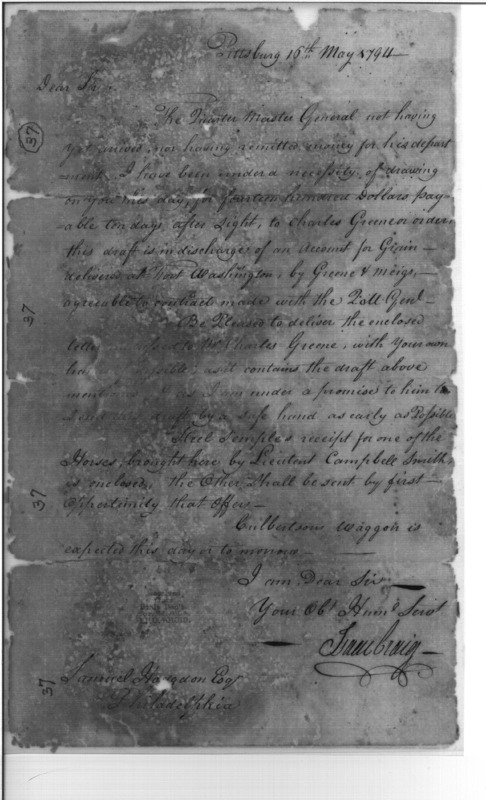 Pittsburg 16th May 1794
Dear Sir,
The Quarter Master General not having
yet arrived, nor having remitted money for his depart
ment, I have been under a necessity of drawing
on you this day, for fourteen hundred Dollars pay-
able ten days after Sight, to Charles Greene or order
this draft is in discharge of an account for Grain
delivered at Fort Washington, by Greene & Meigs,
agreeable to contract made with the Q M Genl
Be Pleased to deliver the enclosed
letter Charles Greene, with your own
hand if possible, as it contains the draft above
mentioned I am under a promise to him to
Send draft by a safe hand as early as Possible
Temple's receipt for one of the
Horses, brought here by Lieutent Campbell Smith,
is enclosed, the Other Shall be sent by first
Oppertunity that Offers
Culbertsons Waggon is
expected this day or to morrow
I am Dear Sir
Your Obt Humb Servt
Isaac Craig
Samuel Hodgdon Esqr
Philadelphia
37
37
37
37